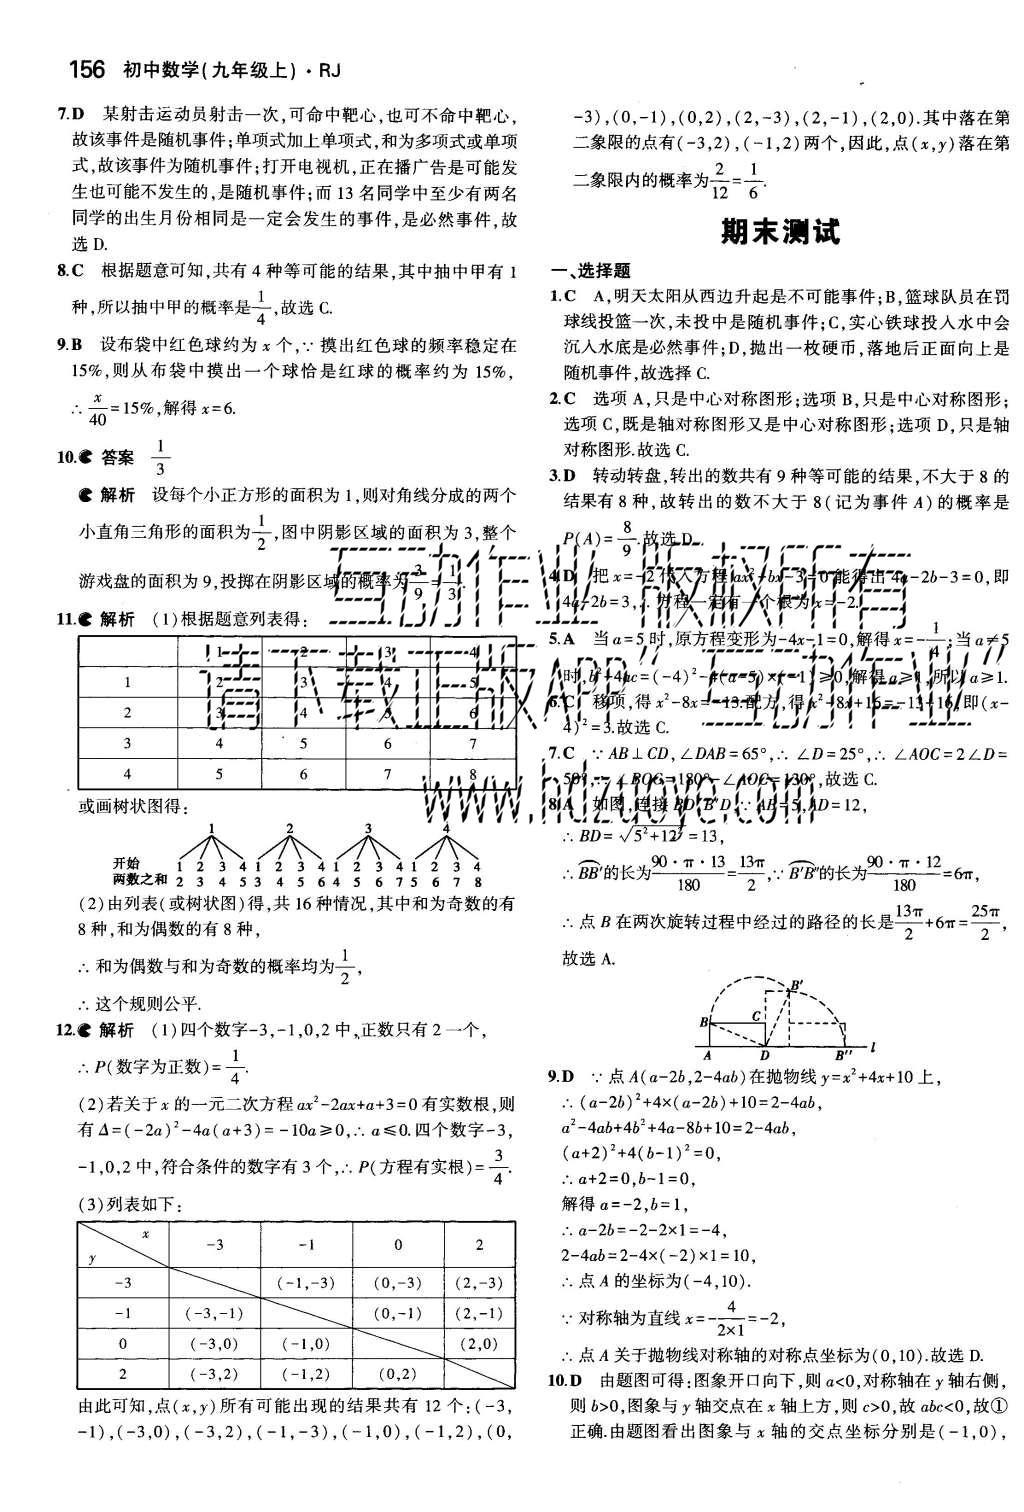 156 初中数学(九年级上)·RJ
7.D 某射击运动员射击一次,可命中靶心,也可不命中靶心,
故该事件是随机事件;单项式加上单项式,和为多项式或单项
式,故该事件为随机事件;打开电视机,正在播广告是可能发
生也可能不发生的,是随机事件;而 13 名同学中至少有两名
同学的出生月份相同是一定会发生的事件,是必然事件,故
选 D.
8.C 根据题意可知,共有 4 种等可能的结果,其中抽中甲有 1
种,所以抽中甲的概率是1/4,故选 C.
9.B 设布袋中红色球约为 x 个,∵摸出红色球的频率稳定在
15%,则从布袋中摸出一个球恰是红球的概率约为 15%,
∴x/40=15%,解得 x=6.
10. 答案 1/3
解析 设每个小正方形的面积为 1,则对角线分成的两个
小直角三角形的面积为1/2,图中阴影区域的面积为 3,整个
游戏盘的面积为 9,投掷在阴影区域的概率为3/9=1/3.
11. 解析 (1)根据题意列表得:
1 2 3 4
1 2 3 4 5
2 3 4 5 6
3 4 5 6 7
4 5 6 7 8
或画树状图得:
1 2 3 4
开始 1 2 3 4 1 2 3 4 1 2 3 4 1 2 3 4
两数之和 2 3 4 5 3 4 5 6 4 5 6 7 5 6 7 8
(2)由列表(或树状图)得,共 16 种情况,其中和为奇数的有
8 种,和为偶数的有 8 种,
∴和为偶数与和为奇数的概率均为1/2,
∴这个规则公平.
12. 解析 (1)四个数字-3,-1,0,2 中,正数只有 2 一个,
∴P(数字为正数)=1/4.
(2)若关于 x 的一元二次方程 ax²-2ax+a+3=0 有实数根,则
有 Δ=(-2a)²-4a(a+3)=-10a≥0,∴a≤0.四个数字-3,
-1,0,2 中,符合条件的数字有 3 个,∴P(方程有实根)=3/4.
(3)列表如下:
x y -3 -1 0 2
-3 (-1,-3) (0,-3) (2,-3)
-1 (-3,-1) (0,-1) (2,-1)
0 (-3,0) (-1,0) (2,0)
2 (-3,2) (-1,2) (0,2)
由此可知,点(x,y)所有可能出现的结果共有 12 个:(-3,
-1),(-3,0),(-3,2),(-1,-3),(-1,0),(-1,2),(0,
-3),(0,-1),(0,2),(2,-3),(2,-1),(2,0).其中落在第
二象限的点有(-3,2),(-1,2)两个,因此,点(x,y)落在第
二象限内的概率为2/12=1/6.
期末测试
一、选择题
1.C A,明天太阳从西边升起是不可能事件;B,篮球队员在罚
球线投篮一次,未投中是随机事件;C,实心铁球投入水中会
沉入水底是必然事件;D,抛出一枚硬币,落地后正面向上是
随机事件,故选择 C.
2.C 选项 A,只是中心对称图形;选项 B,只是中心对称图形;
选项 C,既是轴对称图形又是中心对称图形;选项 D,只是轴
对称图形.故选 C.
3.D 转动转盘,转出的数共有 9 种等可能的结果,不大于 8 的
结果有 8 种,故转出的数不大于 8(记为事件 A)的概率是
P(A)=8/9.故选 D.
4.D 把 x=-2 代入方程 ax²+bx-3=0 能得出 4a-2b-3=0,即
4a-2b=3,∴方程一定有一个根为 x=-2.
5.A 当 a=5 时,原方程变形为-4x-1=0,解得 x=-1/4;当 a≠5
时,b²-4ac=(-4)²-4(a-5)×(-1)≥0,解得 a≥1,所以 a≥1.
6.C 移项,得 x²-8x=-13.配方,得 x²-8x+16=-13+16,即(x-
4)²=3.故选 C.
7.C ∵AB⊥CD,∠DAB=65°,∴∠D=25°,∴∠AOC=2∠D=
50°,∴∠BOC=180°-∠AOC=130°,故选 C.
8.A 如图,连接 BD,B″D,∵AB=5,AD=12,
∴BD=√5²+12²=13,
∴BB′的长为90·π·13/180=13π/2,∵B′B″的长为90·π·12/180=6π,
∴点 B 在两次旋转过程中经过的路径的长是13π/2+6π=25π/2,
故选 A.
B′
B C
A D B″ l
9.D ∵点 A(a-2b,2-4ab)在抛物线 y=x²+4x+10 上,
∴(a-2b)²+4×(a-2b)+10=2-4ab,
a²-4ab+4b²+4a-8b+10=2-4ab,
(a+2)²+4(b-1)²=0,
∴a+2=0,b-1=0,
解得 a=-2,b=1,
∴a-2b=-2-2×1=-4,
2-4ab=2-4×(-2)×1=10,
∴点 A 的坐标为(-4,10).
∵对称轴为直线 x=-4/2×1=-2,
∴点 A 关于抛物线对称轴的对称点坐标为(0,10).故选 D.
10.D 由题图可得:图象开口向下,则 a<0,对称轴在 y 轴右侧,
则 b>0,图象与 y 轴交点在 x 轴上方,则 c>0,故 abc<0,故①
正确.由题图看出图象与 x 轴的交点坐标分别是(-1,0),
互动作业 版权所有
请下载互动作业APP“互动作业”
www.hdzuoye.com